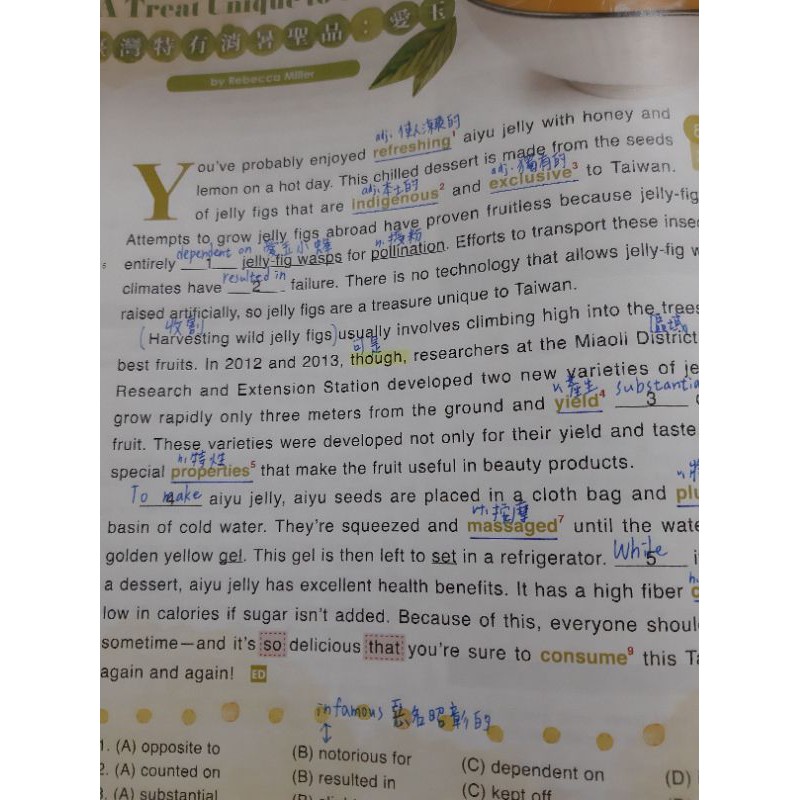 A Treat Unique to
臺灣特有消暑聖品：愛玉
by Rebecca Miller
adj. 使人涼爽的
You've probably enjoyed refreshing1 aiyu jelly with honey and
adj. 本土的 adj. 獨有的
lemon on a hot day. This chilled dessert is made from the seeds
of jelly figs that are indigenous2 and exclusive3 to Taiwan.
Attempts to grow jelly figs abroad have proven fruitless because jelly-fig
dependent on 愛玉小蜂 n. 授粉
entirely 1 jelly-fig wasps for pollination. Efforts to transport these inse
resulted in
climates have 2 failure. There is no technology that allows jelly-fig w
raised artificially, so jelly figs are a treasure unique to Taiwan.
收割
(Harvesting wild jelly figs) usually involves climbing high into the trees
可是 區域
best fruits. In 2012 and 2013, though, researchers at the Miaoli District
Research and Extension Station developed two new varieties of je
v. 產生 substantia
grow rapidly only three meters from the ground and yield4 3
fruit. These varieties were developed not only for their yield and taste
n. 特性
special properties5 that make the fruit useful in beauty products.
To make
4 aiyu jelly, aiyu seeds are placed in a cloth bag and plu
vt. 按摩
basin of cold water. They're squeezed and massaged7 until the wate
golden yellow gel. This gel is then left to set in a refrigerator. While 5 i
a dessert, aiyu jelly has excellent health benefits. It has a high fiber c
low in calories if sugar isn't added. Because of this, everyone shoul
sometime—and it's so delicious that you're sure to consume9 this Ta
again and again! ED
infamous 惡名昭彰的
1. (A) opposite to (B) notorious for (C) dependent on (D)
2. (A) counted on (B) resulted in (C) kept off
3. (A) substantial